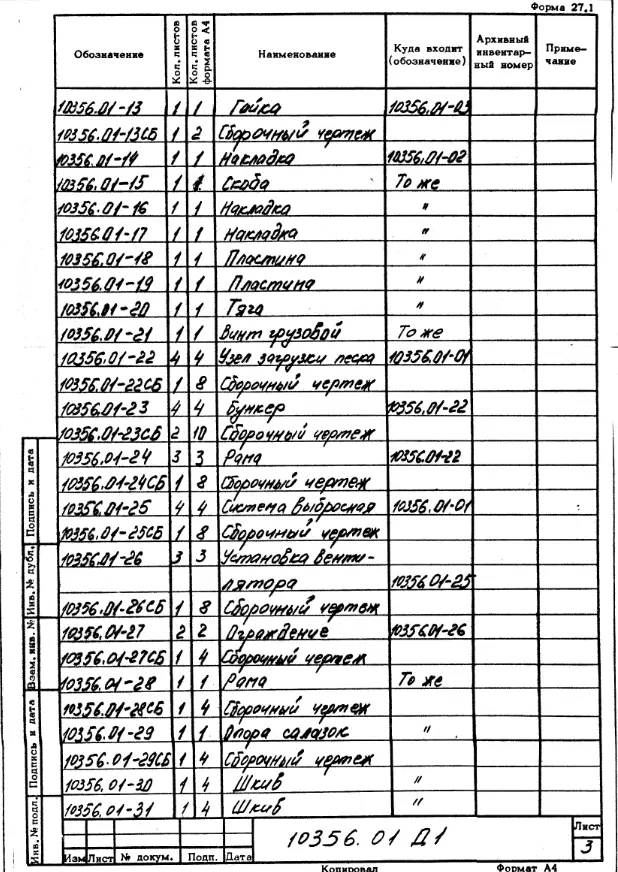 Форма 27.1
Обозначение Кол. листов Кол. листов формата А4 Наименование Куда входит (обозначение) Архивный инвентар- ный номер Приме- чание
10356.01-13 1 1 Гайка 10356.01-03
10356.01-13СБ 1 2 Сборочный чертеж
10356.01-14 1 1 Накладка 10356.01-02
10356.01-15 1 1 Скоба То же
10356.01-16 1 1 Накладка "
10356.01-17 1 1 Накладка "
10356.01-18 1 1 Пластина "
10356.01-19 1 1 Пластина "
10356.01-20 1 1 Тяга "
10356.01-21 1 1 Винт грузовой То же
10356.01-22 4 4 Узел загрузки песка 10356.01-01
10356.01-22СБ 1 8 Сборочный чертеж
10356.01-23 4 4 Бункер 10356.01-22
10356.01-23СБ 2 10 Сборочный чертеж
10356.01-24 3 3 Рама 10356.01-22
10356.01-24СБ 1 8 Сборочный чертеж
10356.01-25 4 4 Система выбросная 10356.01-01
10356.01-25СБ 1 8 Сборочный чертеж
10356.01-26 3 3 Установка венти-
лятора 10356.01-25
10356.01-26СБ 1 8 Сборочный чертеж
10356.01-27 2 2 Ограждение 10356.01-26
10356.01-27СБ 1 4 Сборочный чертеж
10356.01-28 1 1 Рама То же
10356.01-28СБ 1 4 Сборочный чертеж
10356.01-29 1 1 Опора салазок "
10356.01-29СБ 1 4 Сборочный чертеж
10356.01-30 1 4 Шкив "
10356.01-31 1 4 Шкив "
Подпись и дата
Инв. № дубл.
Взам. инв. №
Подпись и дата
Инв. № подл.
10356.01 Д1
Лист
3
Изм Лист № докум. Подп. Дата
Копировал Формат А4